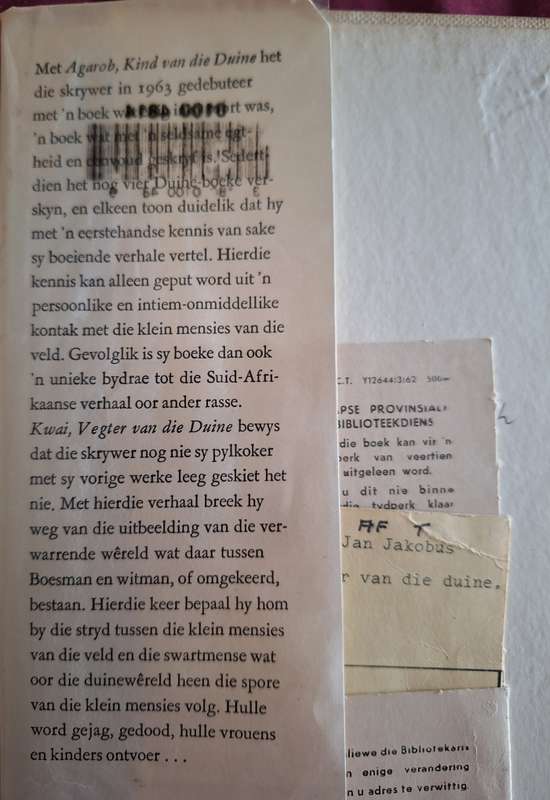 Met Agarob, Kind van die Duine het
die skrywer in 1963 gedebuteer
met 'n boek was,
'n boek wat met 'n seldsame egt-
heid en eenvoud geskryf is. Sedert-
dien het nog vier Duine-boeke ver-
skyn, en elkeen toon duidelik dat hy
met 'n eerstehandse kennis van sake
sy boeiende verhale vertel. Hierdie
kennis kan alleen geput word uit 'n
persoonlike en intiem-onmiddellike
kontak met die klein mensies van die
veld. Gevolglik is sy boeke dan ook
'n unieke bydrae tot die Suid-Afri-
kaanse verhaal oor ander rasse.
Kwai, Vegter van die Duine bewys
dat die skrywer nog nie sy pylkoker
met sy vorige werke leeg geskiet het
nie. Met hierdie verhaal breek hy
weg van die uitbeelding van die ver-
warrende wêreld wat daar tussen
Boesman en witman, of omgekeerd,
bestaan. Hierdie keer bepaal hy hom
by die stryd tussen die klein mensies
van die veld en die swartmense wat
oor die duinewêreld heen die spore
van die klein mensies volg. Hulle
word gejag, gedood, hulle vrouens
en kinders ontvoer . . .
C.T. Y12644:3:62 500m
PSE PROVINSIALE
BIBLIOTEEKDIENS
die boek kan vir 'n
perk van veertien
uitgeleen word.
u dit nie binne
die tydperk klaar
AF T
Jan Jakobus
r van die duine.
liewe die Bibliotekaris
n enige verandering
n u adres te verwittig.